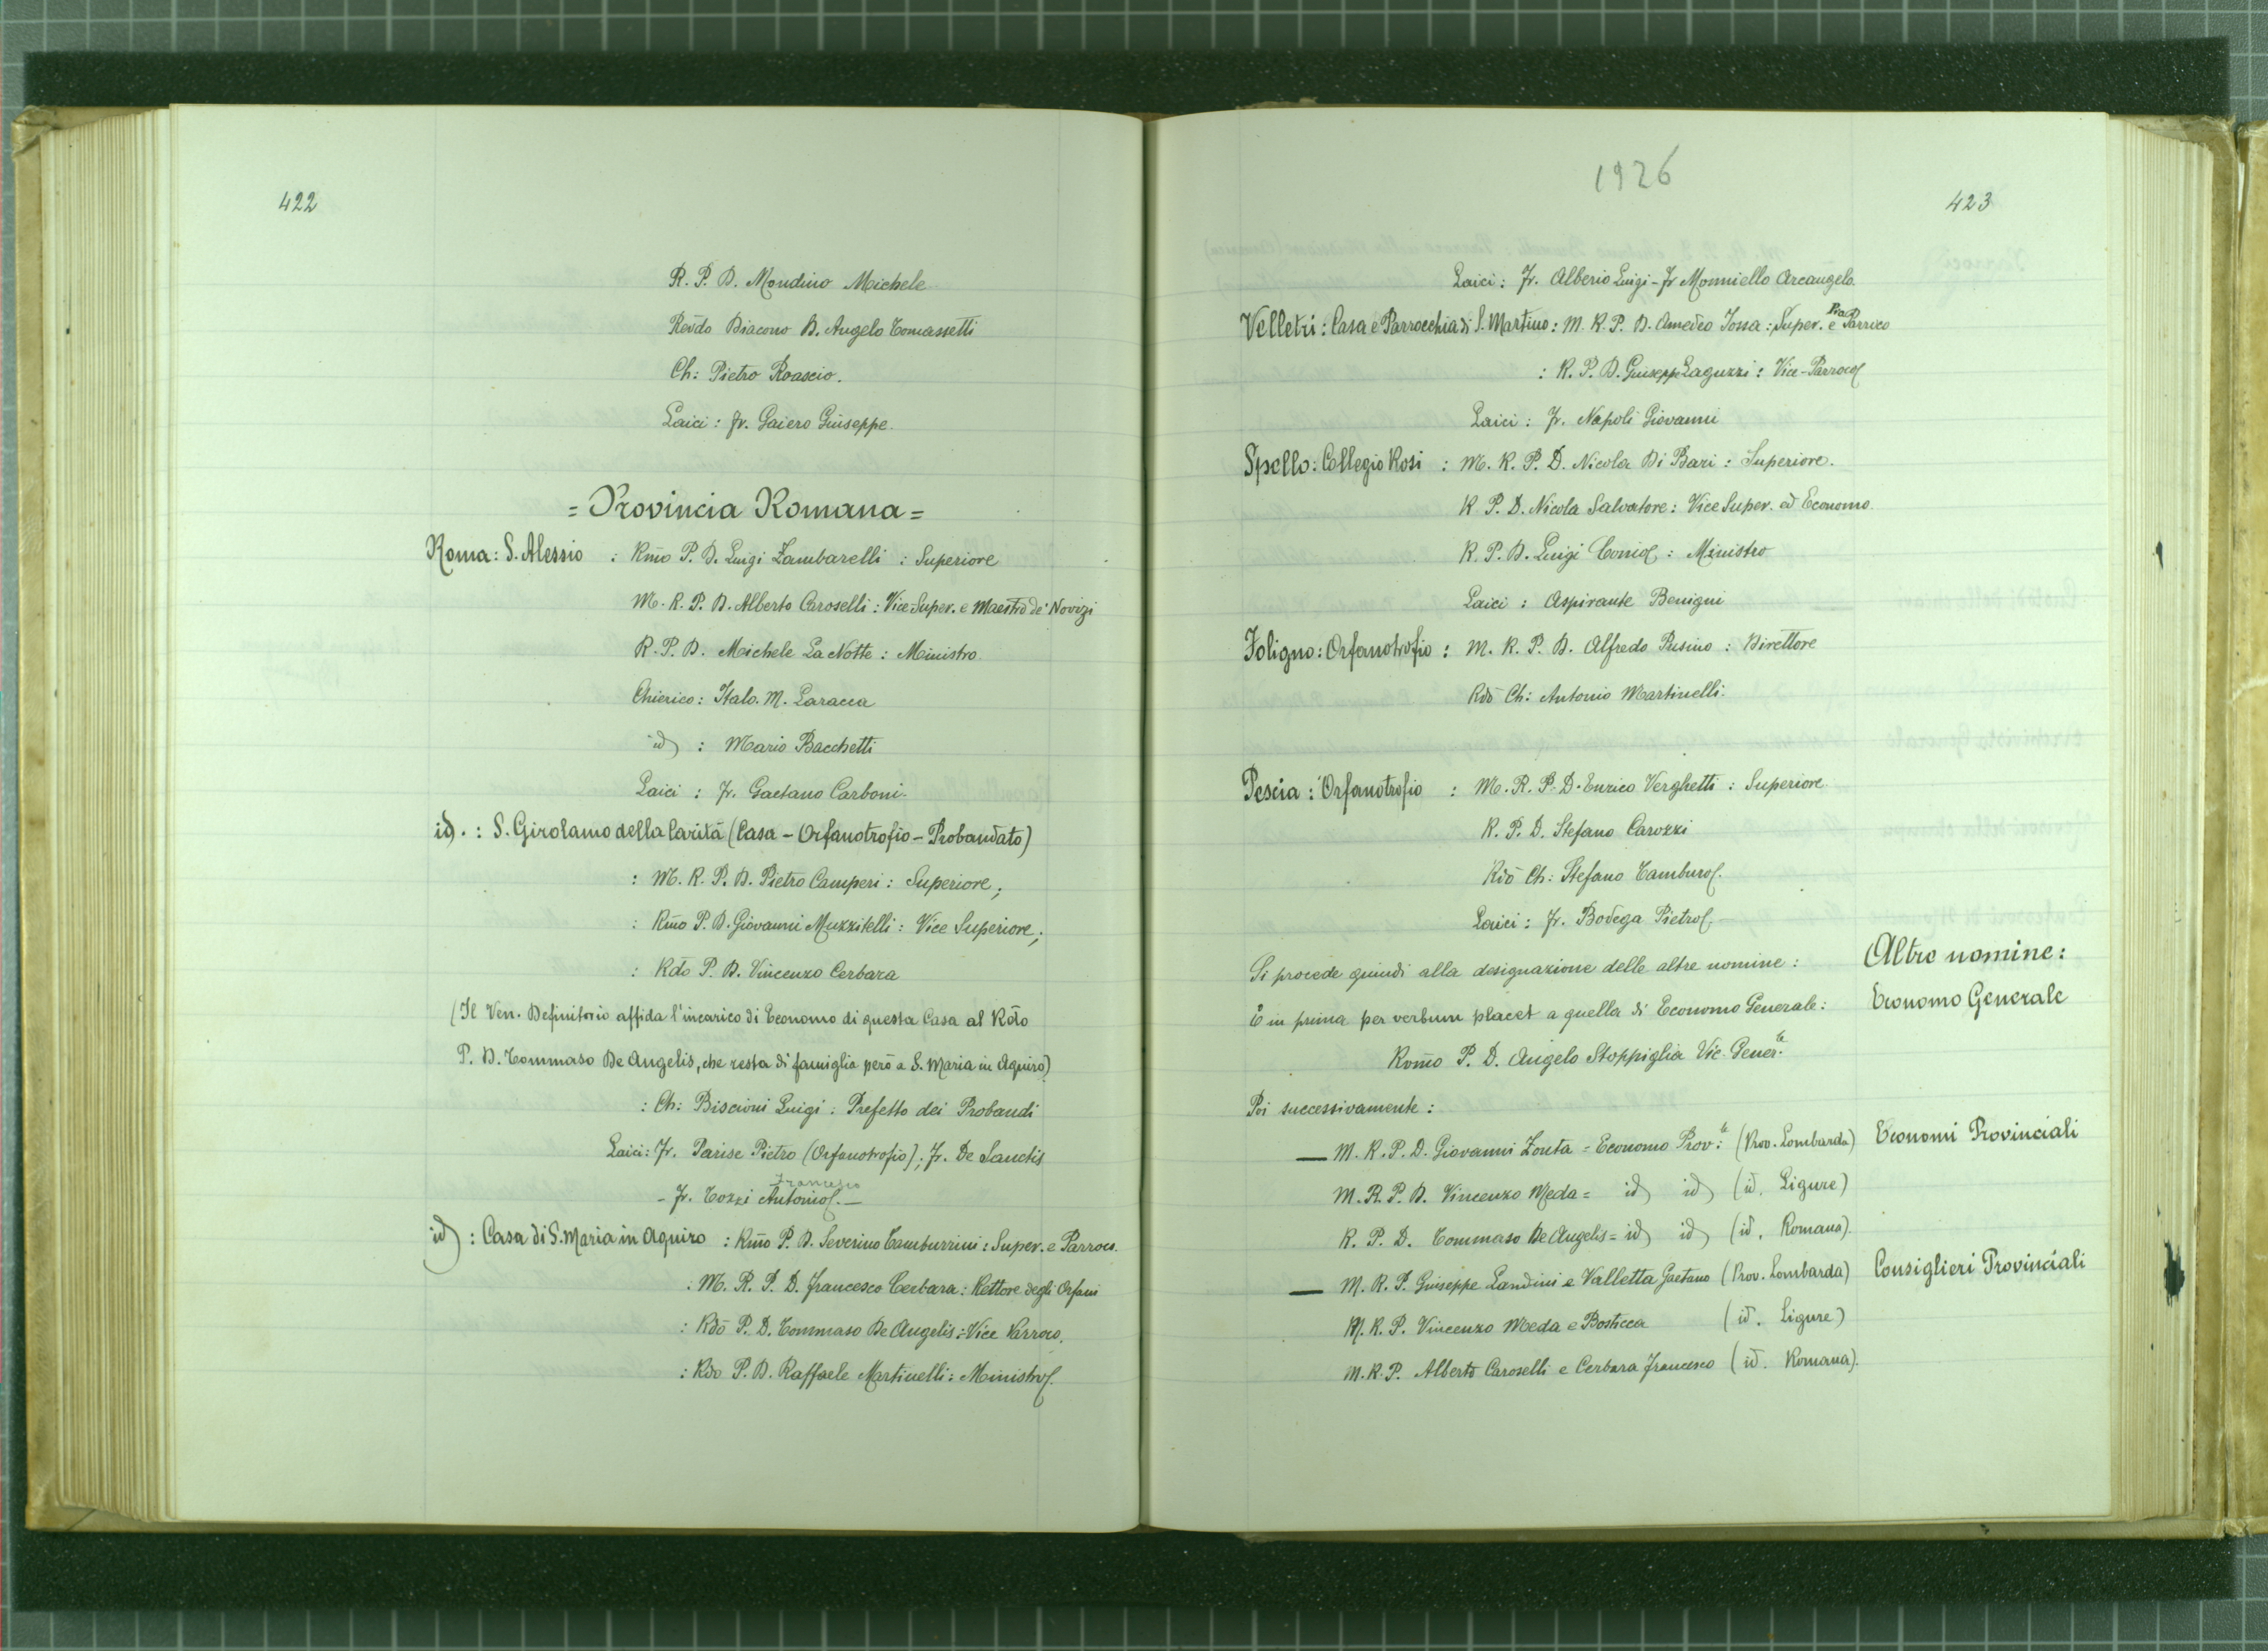 422
R. P. D. Mondino Michele
Revdo Diacono D. Angelo Tomassetti
Ch: Pietro Roascio.
Laici: Fr. Gaiero Giuseppe.
= Provincia Romana =
Roma: S. Alessio : Rm̃o P. D. Luigi Zambarelli : Superiore
M. R. P. D. Alberto Caroselli : Vice-Super. e Maestro de' Novizi
R. P. D. Michele La Notte : Ministro
Chierico: Italo. M. Laracca
id : Mario Bacchetti
Laici : Fr. Gaetano Carboni.
id. : S. Girolamo della Carità (Casa - Orfanotrofio - Probandato)
: M. R. P. D. Pietro Camperi : Superiore;
: Rm̃o P. D. Giovanni Muzzitelli : Vice Superiore;
: Rdo P. D. Vincenzo Cerbara
(Il Ven. Definitorio affida l'incarico di Economo di questa Casa al Rdo
P. D. Tommaso De Angelis, che resta di famiglia però a S. Maria in Aquiro)
: Ch: Biscioni Luigi : Prefetto dei Probandi
Laici: Fr. Parise Pietro (Orfanotrofio); Fr. De Sanctis
Francesco
- Fr. Tozzi Antonio. -
id : Casa di S. Maria in Aquiro : Rm̃o P. D. Severino Tamburrini : Super. e Parroco.
: M. R. P. D. Francesco Cerbara : Rettore degli Orfani
: Rdo P. D. Tommaso De Angelis : Vice Parroco.
: Rdo P. D. Raffaele Martinelli : Ministro.
1926
423
Laici: Fr. Alberio Luigi - Fr Monniello Arcangelo.
Velletri : Casa e Parrocchia di S. Martino : M. R. P. D. Amedeo Jossa : Super. e Pro Parroco
: R. P. D. Giuseppe Laguzzi : Vice-Parroco
Laici : Fr. Napoli Giovanni
Spello : Collegio Rosi : M. R. P. D. Nicola Di Bari : Superiore.
R. P. D. Nicola Salvatore : Vice Super. ed Economo.
R. P. D. Luigi Conio : Ministro
Laici : Aspirante Benigni
Foligno : Orfanotrofio : M. R. P. D. Alfredo Pusino : Direttore
Rdo Ch: Antonio Martinelli.
Pescia : Orfanotrofio : M. R. P. D. Enrico Verghetti : Superiore
R. P. D. Stefano Carozzi
Rdo Ch: Stefano Tamburo.
Laici : Fr. Bodega Pietro.
Si procede quindi alla designazione delle altre nomine : Altre nomine :
E in prima per verbum placet a quella di Economo Generale : Economo Generale
Rom̃o P. D. Angelo Stoppiglia Vic. Gener.le
Poi successivamente :
— M. R. P. D. Giovanni Zonta = Economo Prov.le (Prov. Lombarda) Economi Provinciali
M. R. P. D. Vincenzo Meda = id id (id. Ligure)
R. P. D. Tommaso De Angelis = id id (id. Romana).
— M. R. P. Giuseppe Landini e Valletta Gaetano (Prov. Lombarda) Consiglieri Provinciali
M. R. P. Vincenzo Meda e Bosticca (id. Ligure)
M. R. P. Alberto Caroselli e Cerbara Francesco (id. Romana).